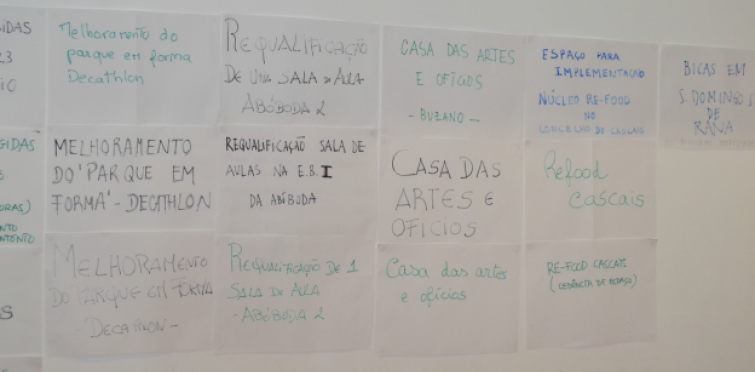 23
Melhoramento do
parque em forma
Decathlon
REQUALIFICAÇÃO
DE UMA SALA DE AULA
ABÓBODA 2
CASA DAS ARTES
E OFÍCIOS
- BUZANO -
ESPAÇO PARA
IMPLEMENTAÇÃO
NÚCLEO RE-FOOD
NO
CONCELHO DE CASCAIS
BICAS EM
S. DOMINGOS
DE
RANA
MELHORAMENTO
DO 'PARQUE EM
FORMA' - DECATHLON
REQUALIFICAÇÃO SALA DE
AULAS NA E.B. I
DA ABÓBODA
CASA DAS
ARTES E
OFICIOS
Refood
cascais
MELHORAMENTO
DO PARQUE EM FORMA
- DECATHLON -
REQUALIFICAÇÃO DE 1
SALA DE AULA
- ABÓBODA 2
Casa das artes
e ofícios
RE-FOOD CASCAIS
(CEDÊNCIA DE ESPAÇO)
S